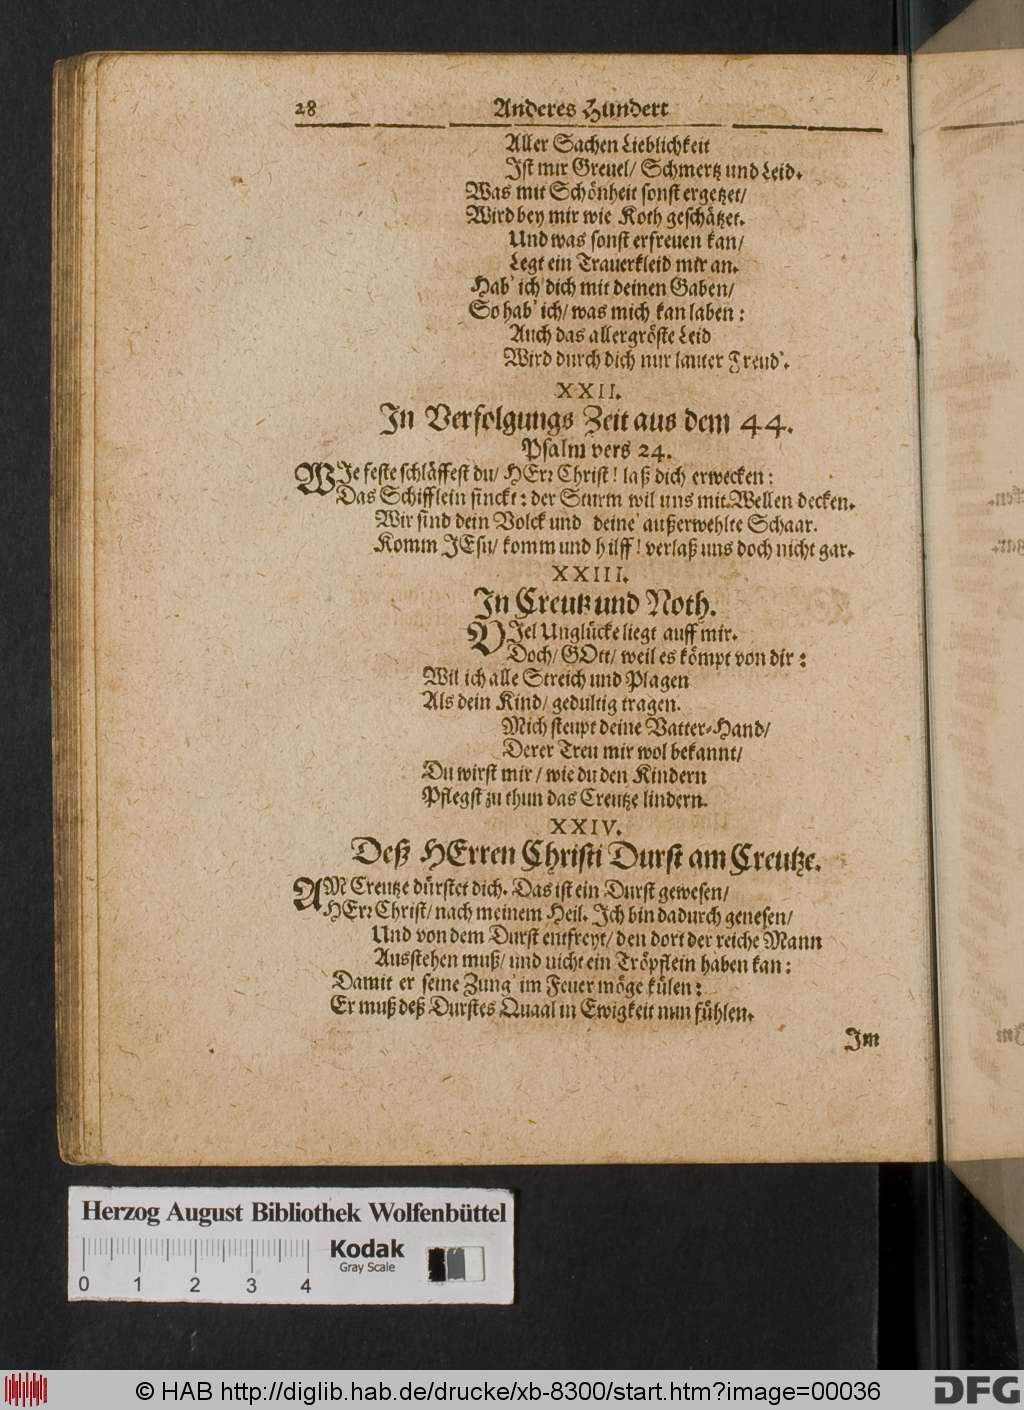 28 Anderes Hundert
Aller Sachen Lieblichkeit
Ist mir Greuel/ Schmertz und Leid.
Was mit Schönheit sonst ergetzet/
Wird bey mir wie Koth geschätzet.
Und was sonst erfreuen kan/
Legt ein Trauerkleid mir an.
Hab' ich dich mit deinen Gaben/
So hab' ich/ was mich kan laben:
Auch das allergröste Leid
Wird durch dich nur lauter Freud'.
XXII.
In Verfolgungs Zeit aus dem 44.
Psalm vers 24.
WIe feste schläffest du/ HErr Christ! laß dich erwecken:
Das Schifflein sinckt: der Sturm wil uns mit Wellen decken.
Wir sind dein Volck und deine außerwehlte Schaar.
Komm JEsu/ komm und hilff! verlaß uns doch nicht gar.
XXIII.
In Creutz und Noth.
VIel Unglücke liegt auff mir.
Doch/ GOtt/ weil es kömpt von dir:
Wil ich alle Streich und Plagen
Als dein Kind/ gedultig tragen.
Mich steupt deine Vatter-Hand/
Derer Treu mir wol bekannt/
Du wirst mir/ wie du den Kindern
Pflegst zu thun das Creutze lindern.
XXIV.
Deß HErren Christi Durst am Creutze.
AM Creutze dürstet dich. Das ist ein Durst gewesen/
HErr Christ/ nach meinem Heil. Ich bin dadurch genesen/
Und von dem Durst entfreyt/ den dort der reiche Mann
Ausstehen muß/ und nicht ein Tröpflein haben kan:
Damit er seine Zung' im Feuer möge külen:
Er muß deß Durstes Quaal in Ewigkeit nun fühlen.
Im
Herzog August Bibliothek Wolfenbüttel
Kodak
Gray Scale
0 1 2 3 4
© HAB http://diglib.hab.de/drucke/xb-8300/start.htm?image=00036
DFG